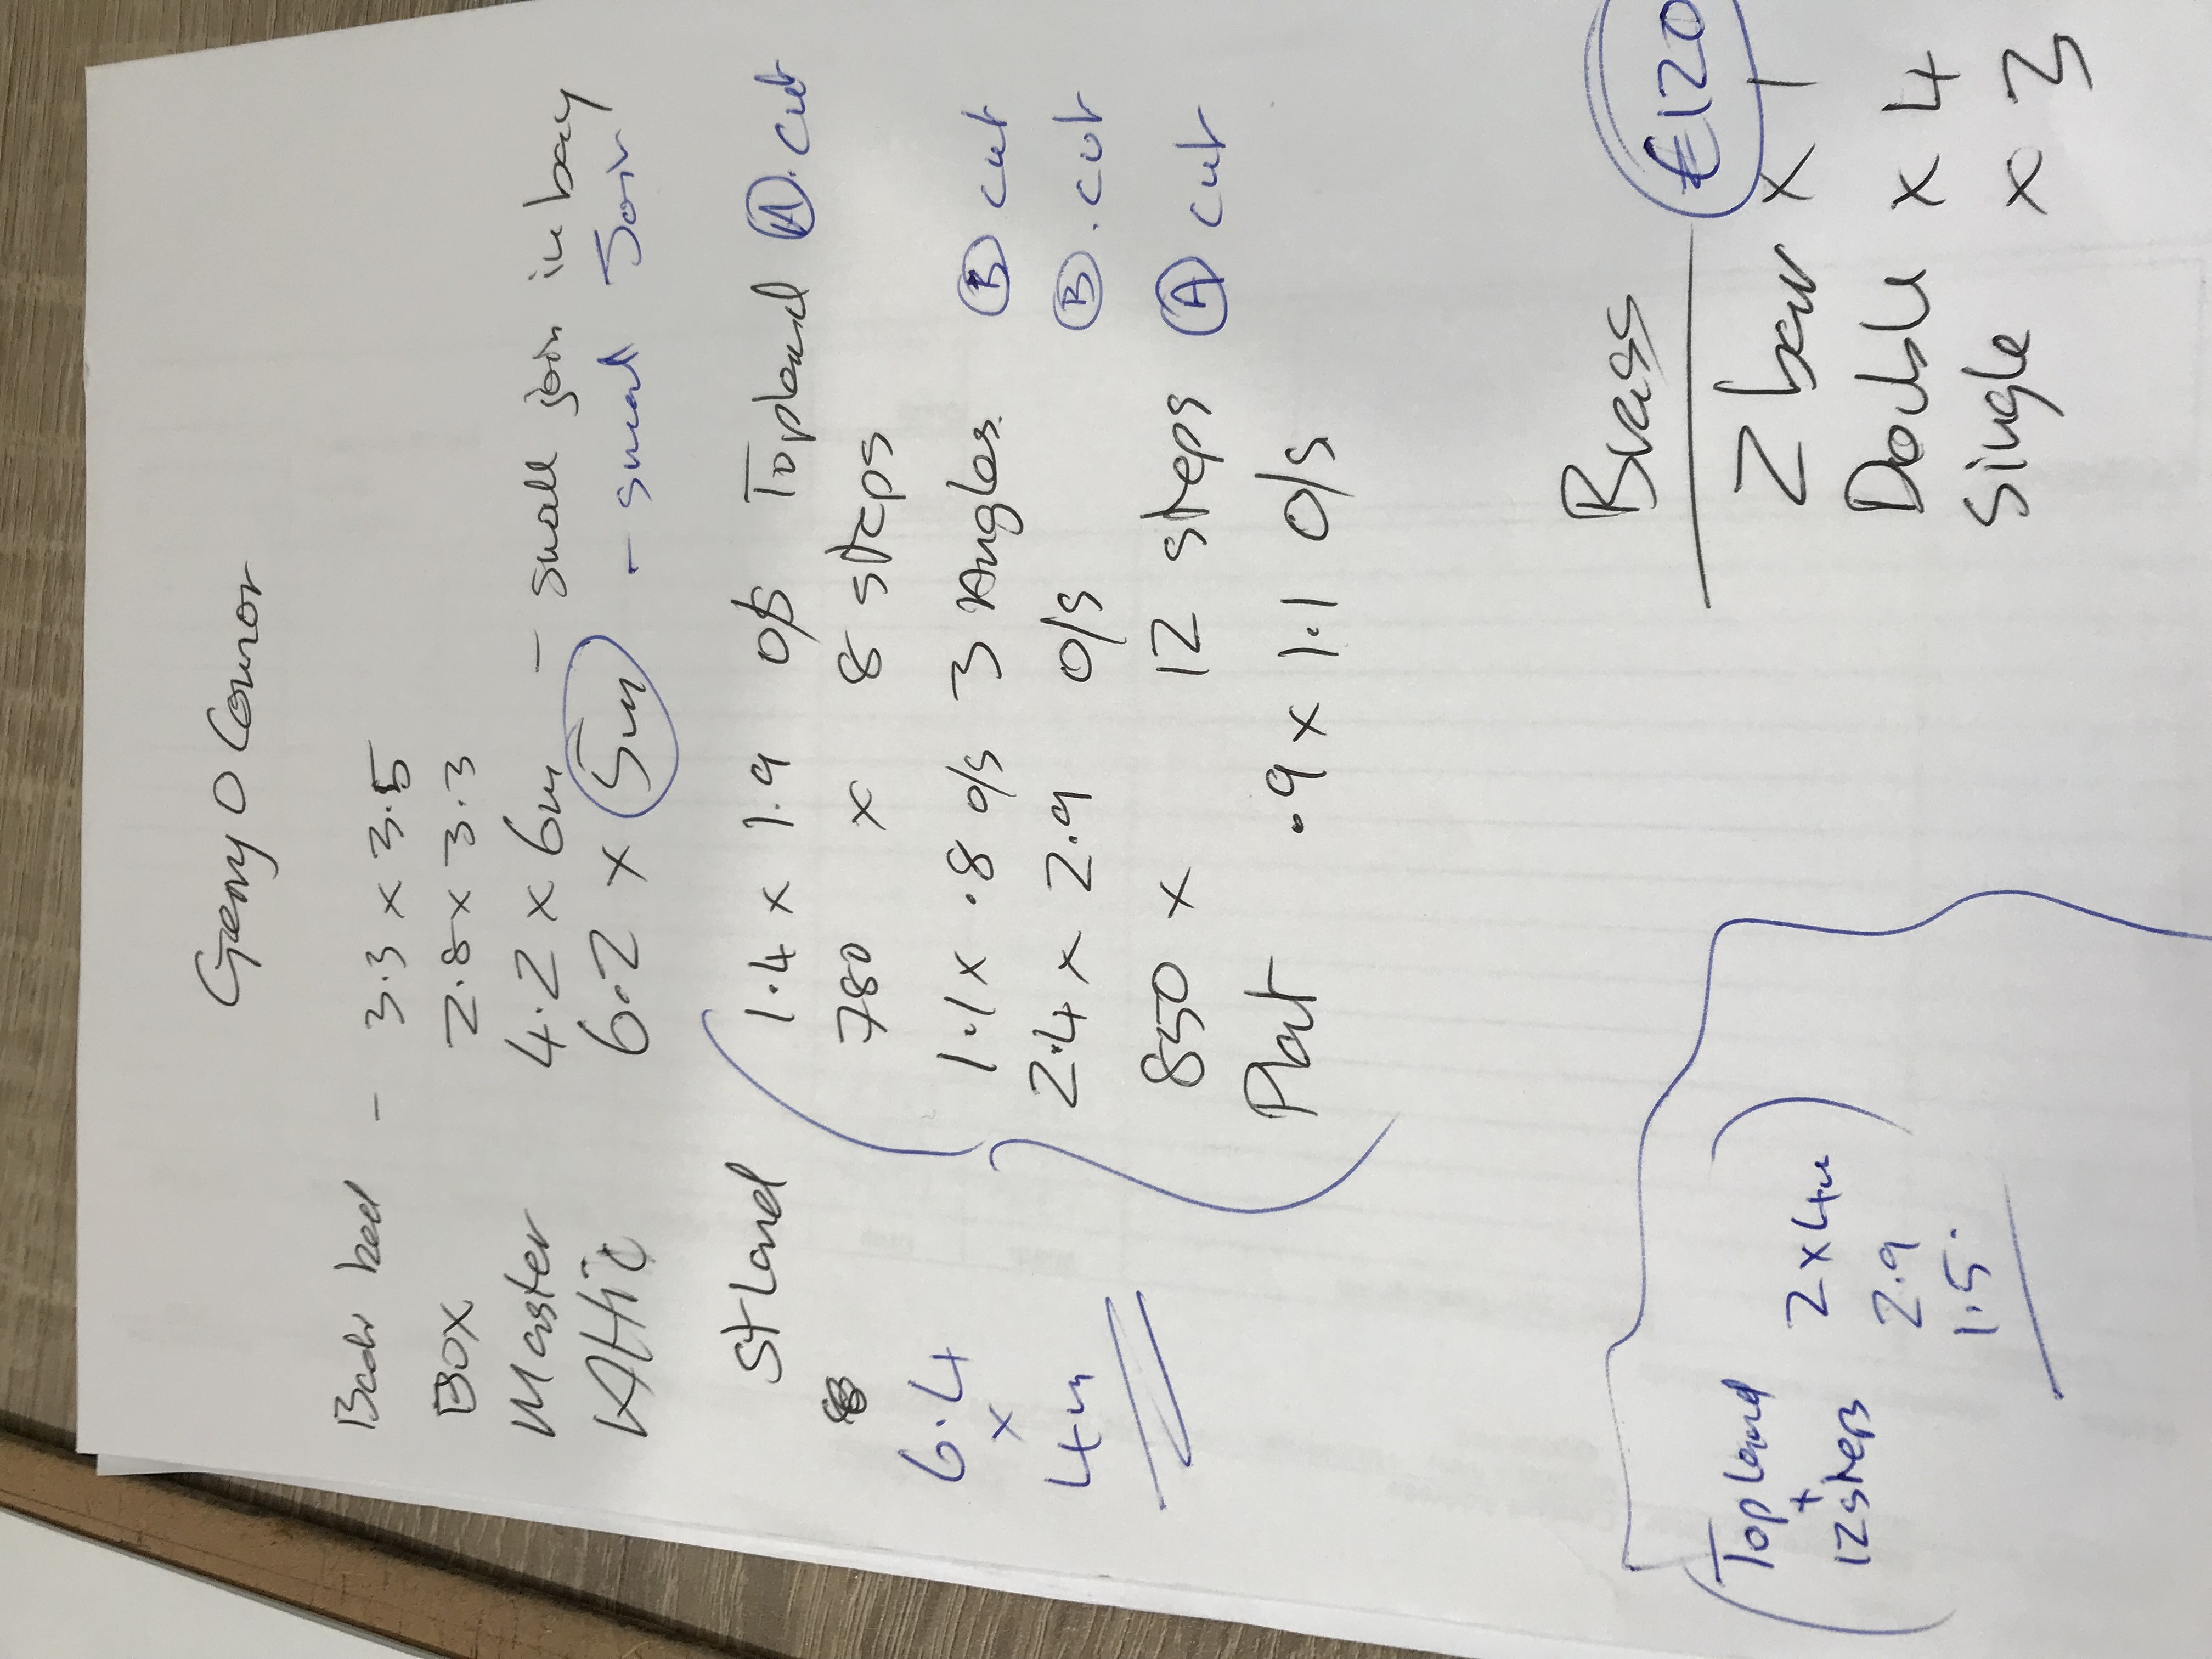 Gerry O Connor
Back bed - 3.3 x 3.5
Box 2.8 x 3.3
Master 4.2 x 6m - small join in bay
Attic 6.2 x 5m - small Join
St Land 1.4 x 1.9 o/s Topland (A).cut
780 x 8 steps
6.4 x 4m
1.1 x .8 o/s 3 Angles. (B) cut
2.4 x 2.9 o/s (B).cut
850 x 12 steps (A) cut
Plat .9 x 1.1 o/s
Brass €120
Z bar x 1
Double x 4
Single x 3
Topland + 12 steps
2 x 4m
2.9
1.5.